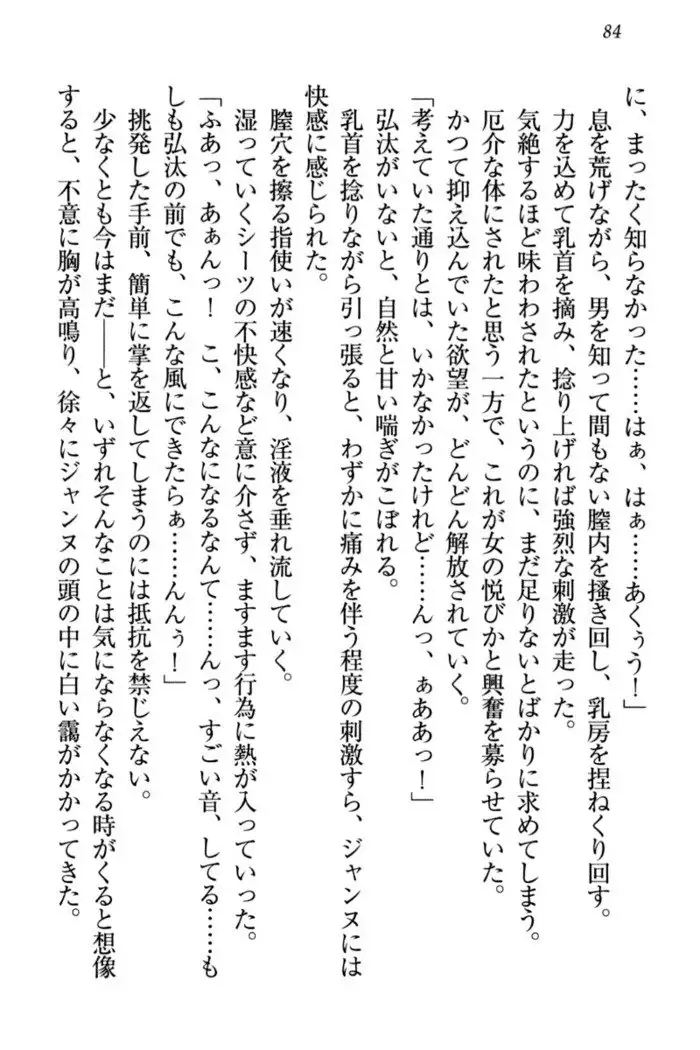 84
に、まったく知らなかった……はぁ、はぁ……あくぅう！」
息を荒げながら、男を知って間もない膣内を掻き回し、乳房を捏ねくり回す。
力を込めて乳首を摘み、捻り上げれば強烈な刺激が走った。
気絶するほど味わわされたというのに、まだ足りないとばかりに求めてしまう。
厄介な体にされたと思う一方で、これが女の悦びかと興奮を募らせていた。
かつて抑え込んでいた欲望が、どんどん解放されていく。
「考えていた通りとは、いかなかったけれど……んっ、ぁああっ！」
弘汰がいないと、自然と甘い喘ぎがこぼれる。
乳首を捻りながら引っ張ると、わずかに痛みを伴う程度の刺激すら、ジャンヌには
快感に感じられた。
膣穴を擦る指使いが速くなり、淫液を垂れ流していく。
湿っていくシーツの不快感など意に介さず、ますます行為に熱が入っていった。
「ふあっ、あぁんっ！　こ、こんなになるなんて……んっ、すごい音、してる……も
しも弘汰の前でも、こんな風にできたらぁ……んんぅ！」
挑発した手前、簡単に掌を返してしまうのには抵抗を禁じえない。
少なくとも今はまだ――と、いずれそんなことは気にならなくなる時がくると想像
すると、不意に胸が高鳴り、徐々にジャンヌの頭の中に白い靄がかかってきた。